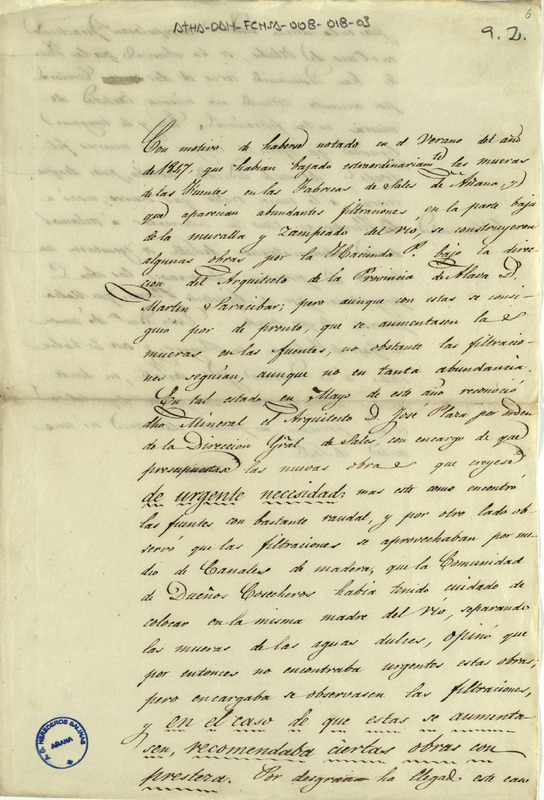 6
ATHA-DAH-FCHSA-008-018-03
9.2.
Con motivo de haberse notado en el Verano del año
de 1847, que habian bajado extraordinariamte las mueras
de las Fuentes en las Fabricas de Sales de Añana, y
que aparecian abundantes filtraciones en la parte baja
de la muralla y zampeado del rio, se construyeron
algunas obras por la Hacienda P. bajo la direc-
cion del Arquitecto de la Provincia de Alava D.
Martin Saracibar; pero aunque con estas se consi-
guió por de pronto, que se aumentasen las
mueras en las fuentes, no obstante las filtracio-
nes seguian, aunque no en tanta abundancia.
En tal estado en Mayo de este año reconoció
dho Mineral el Arquitecto D. José Plaza por orden
de la Direccion Gral de Sales, con encargo de que
presupuestase las nuevas obras que creyese
de urgente necesidad; mas este como encontró
las fuentes con bastante raudal, y por otro lado ob-
servó que las filtraciones se aprovechaban por me-
dio de Canales de madera, que la Comunidad
de Dueños Cosecheros habia tenido cuidado de
colocar en la misma madre del rio, separando
las mueras de las aguas dulces, opinó que
por entonces no encontraba urgentes estas obras;
pero encargaba se observasen las filtraciones,
y en el caso de que estas se aumenta
sen, recomendaba ciertas obras con
presteza. Por desgracia ha llegado este caso
HEREDEROS SALINAS
AÑANA